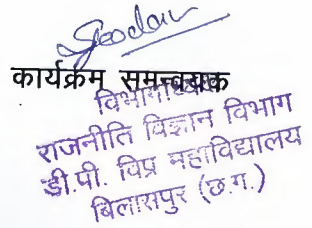 कार्यक्रम समन्वयक
विभागाध्यक्ष
राजनीति विज्ञान विभाग
डी.पी. विप्र महाविद्यालय
बिलासपुर (छ.ग.)